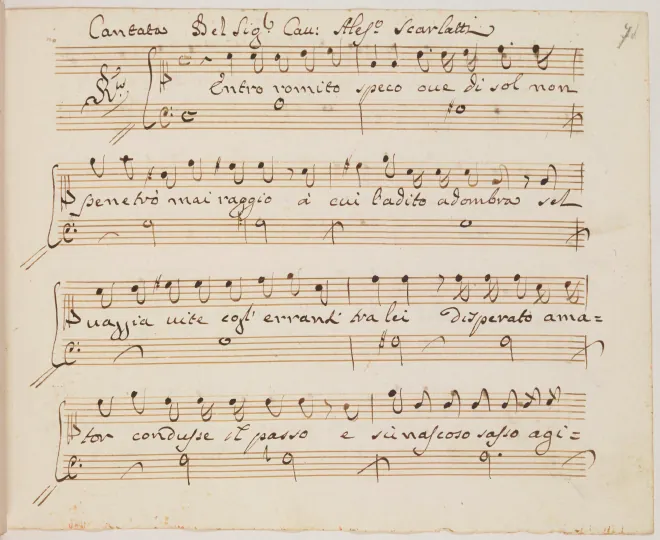 Cantata Del Sig.r Cau: Aless.o Scarlatti
Entro romito speco oue di sol non
penetrò mai raggio à cui l'adito adombra sel
uaggia uite cogl' erranti tralci disperato ama=
tor condusse il passo e sù nascoso sasso agi=